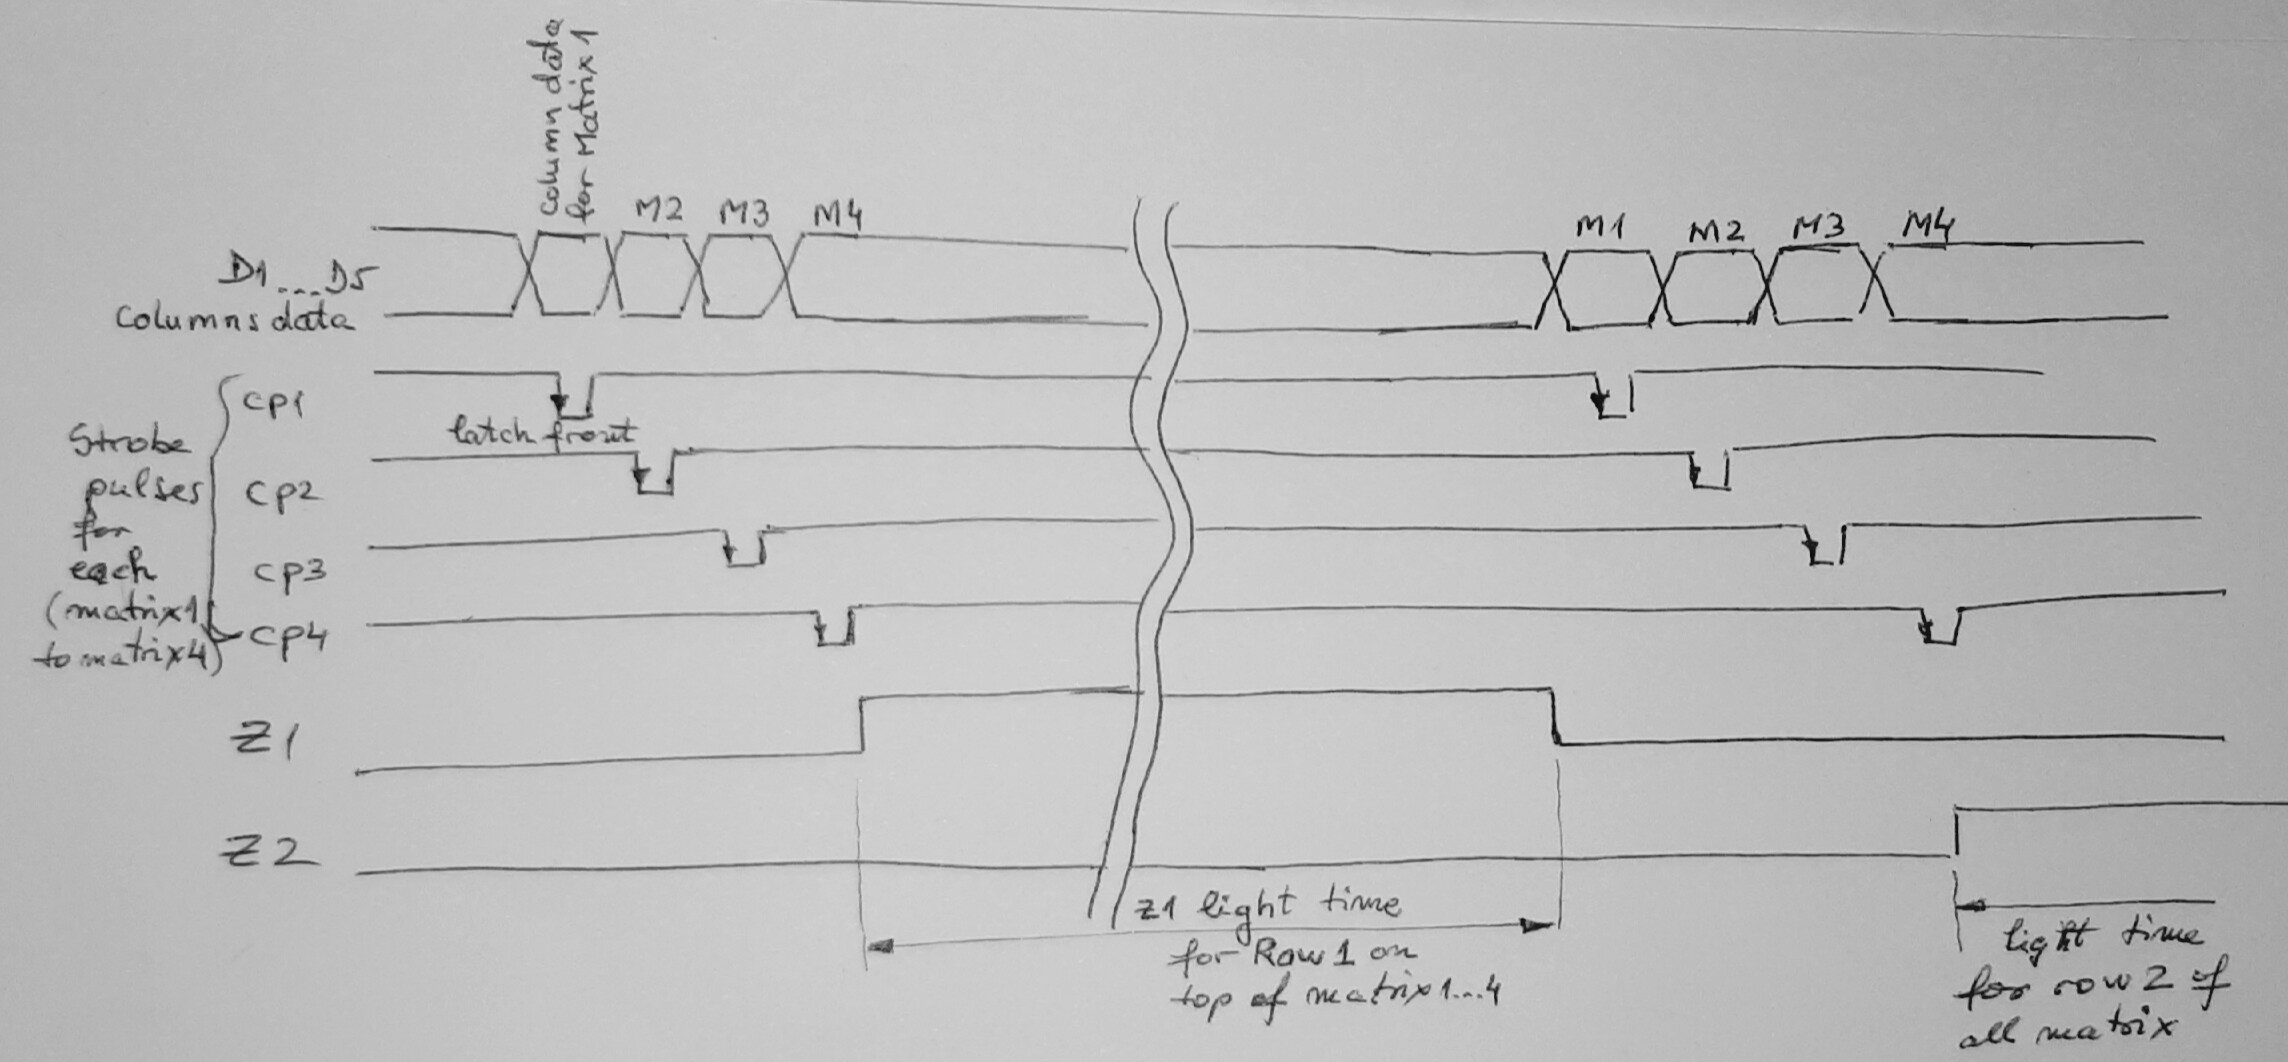 Column data
for Matrix 1
M2 M3 M4
M1 M2 M3 M4
D1...D5
Columns data
cp1
latch front
Strobe
pulses
for
each
(matrix1
to matrix4)
cp2
cp3
cp4
Z1
Z2
Z1 light time
for Row 1 on
top of matrix1...4
light time
for row 2 of
all matrix